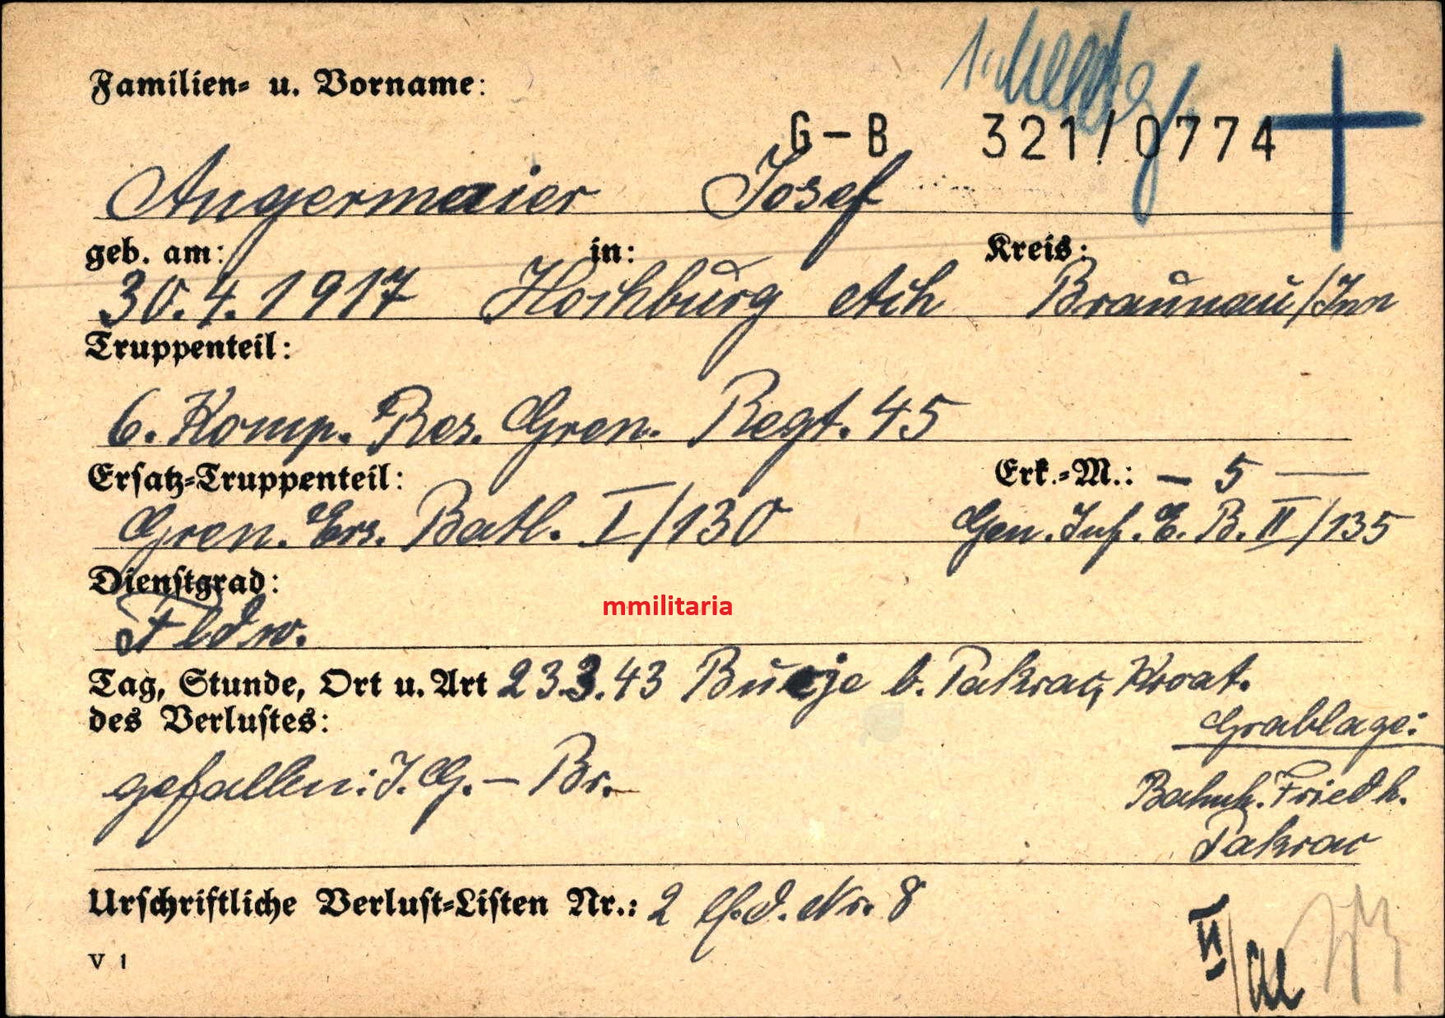 Familien- u. Vorname:
G-B 321/0774
Angermaier Josef
geb. am: in: Kreis:
30.4.1917 Hochburg Ach Braunau/Inn
Truppenteil:
6. Komp. Res. Gren. Regt. 45
Ersatz-Truppenteil: Erk.-M.: – 5 —
Gren. Ers. Batl. I/130 Gen. Inf. E. B. II/135
Dienstgrad:
Fldw.
mmilitaria
Tag, Stunde, Ort u. Art 23.3.43 Bučje b. Pakrac, Kroat.
des Verlustes:
Grablage:
gefallen: I. G. – Br. Bahnh. Friedh.
Pakrac
Urschriftliche Verlust-Listen Nr.: 2 lfd. Nr. 8
V 1
II/